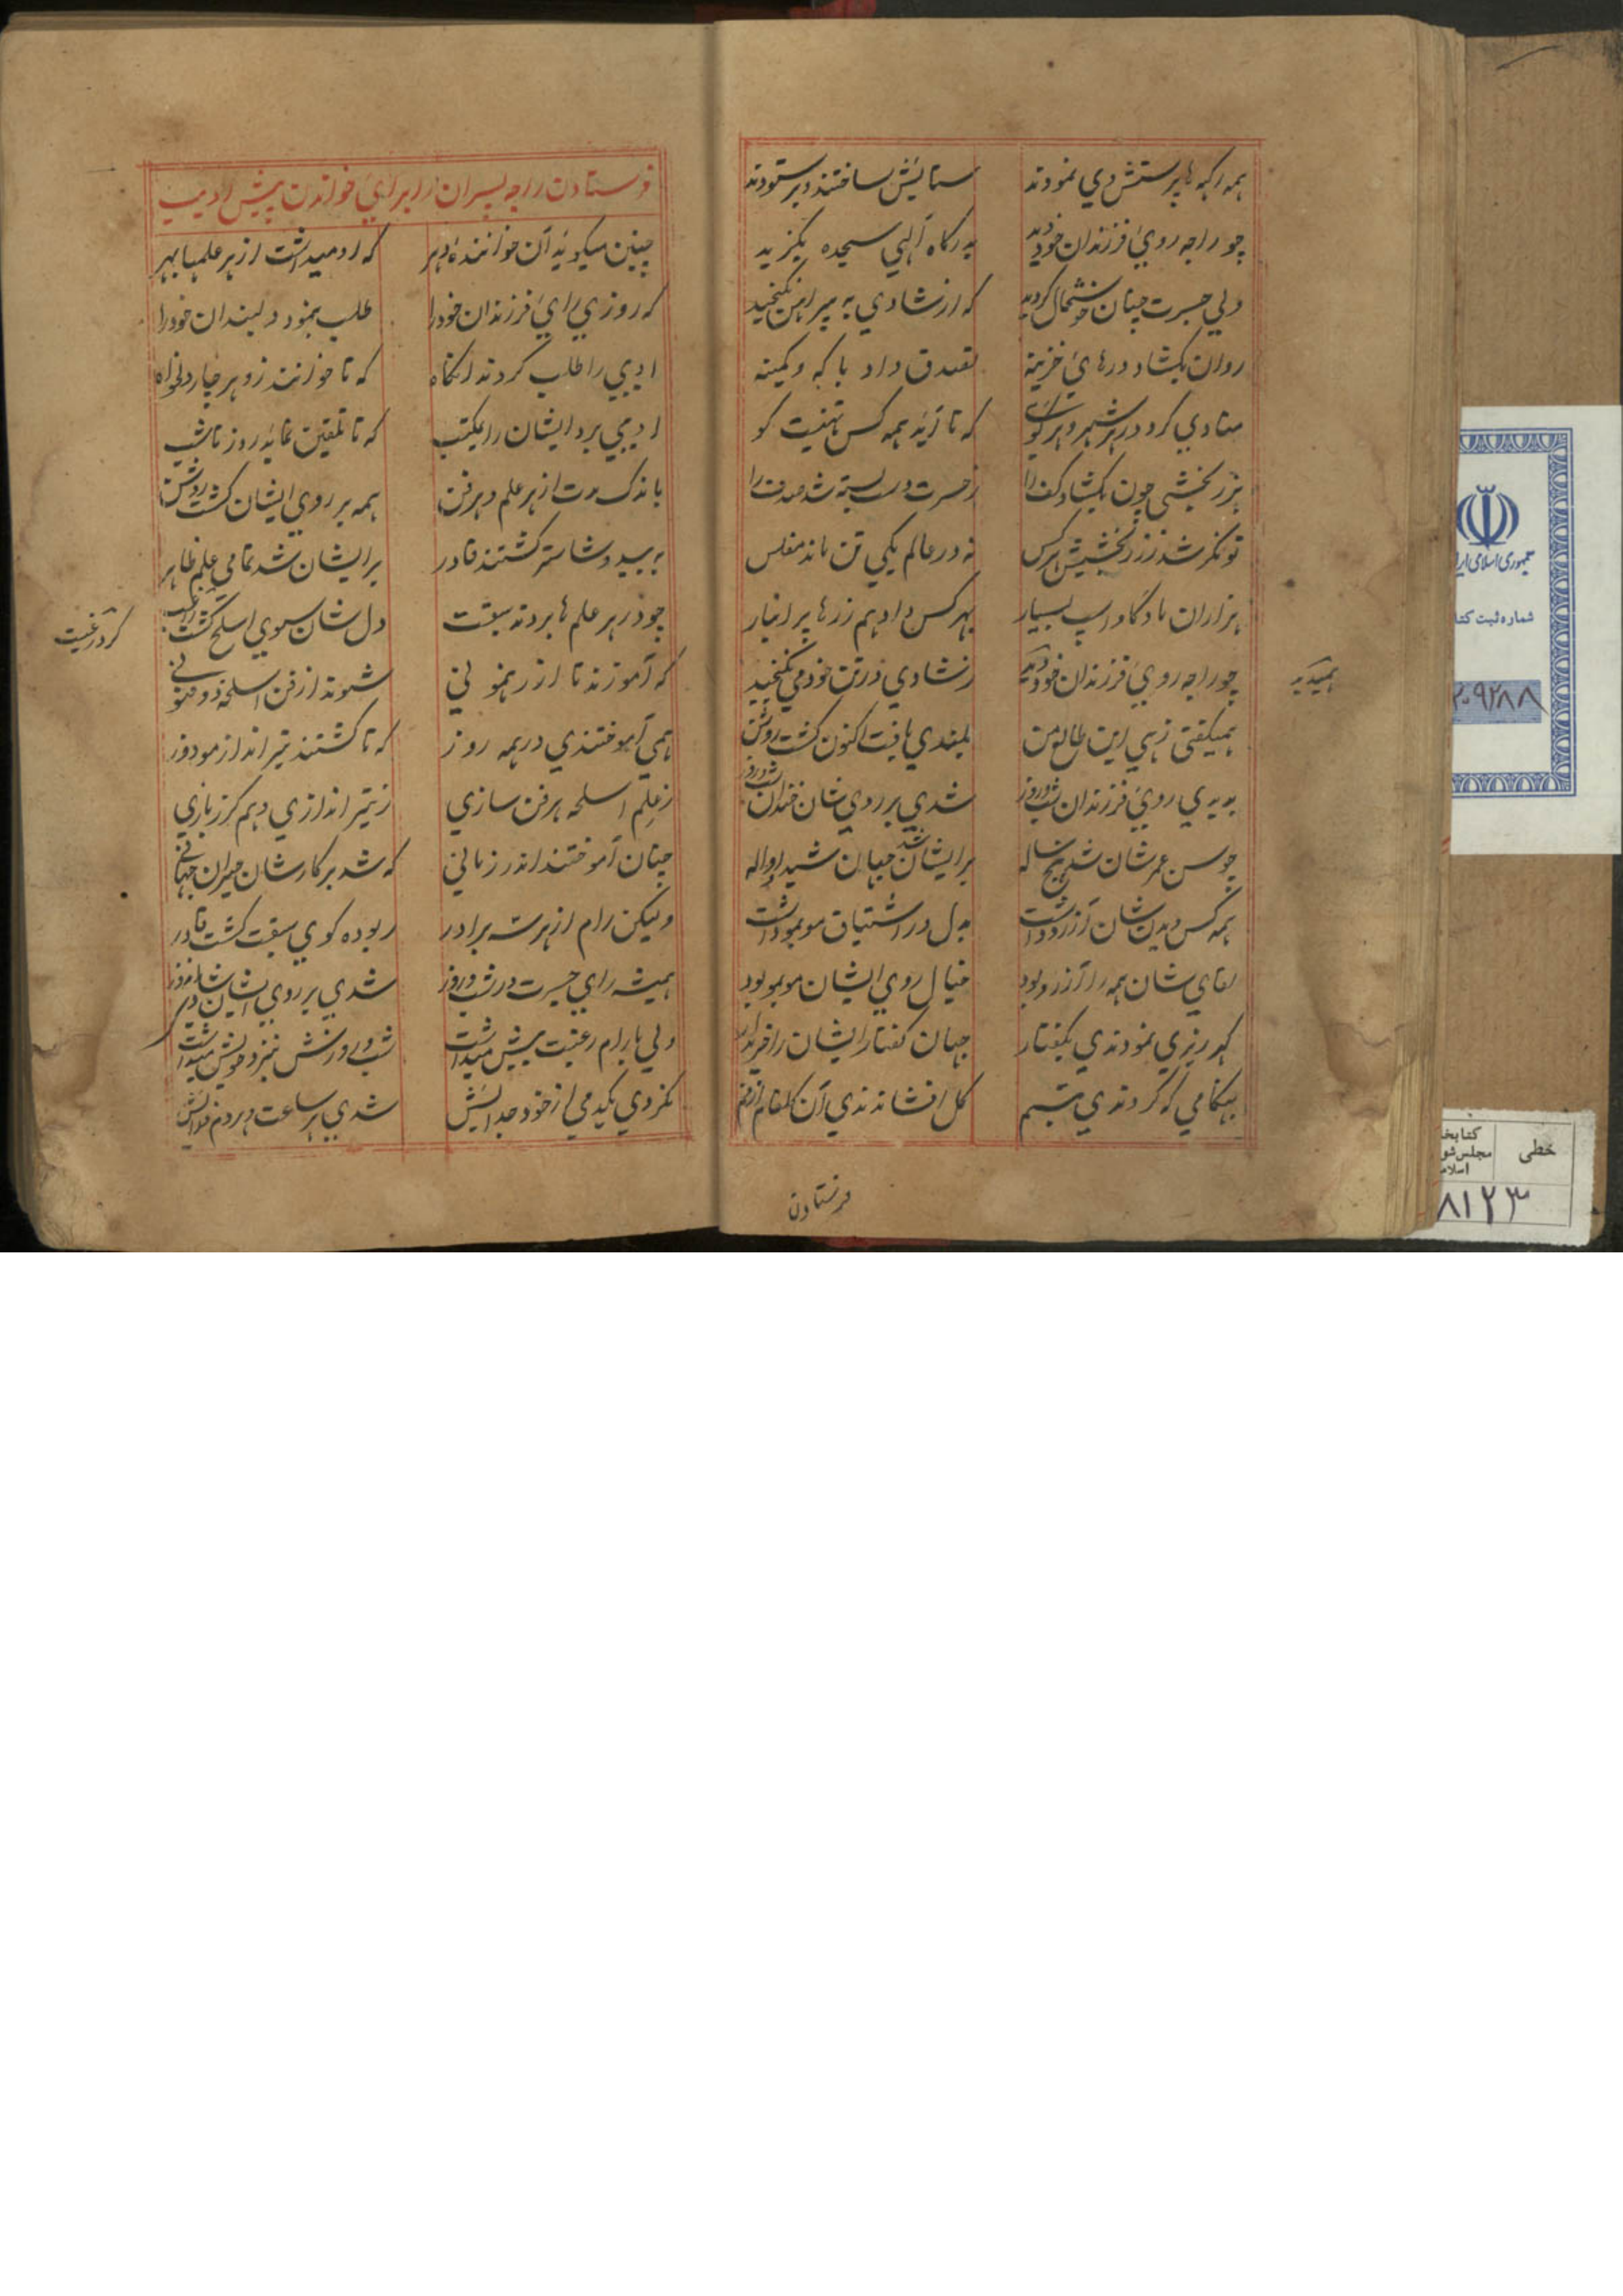 همه راکبه ها پرستش وي نمودند ستایش ساختند و بر ستودند
چو راجه رویٔ فرزندان خود دید بدرگاه آلهي سجده بگزید
ولي جسرت چنان خوشحال کردید که از شادي به پیراهن نکنجید
روان بکشاد درهایٔ خزینه تصدق داد با که و کمینه
منادي کرد در هر شهر و هر کوی که تا آید همه کس تهنیت کو
بزر بخشی چون بکشاد کف را ز حسرت دست بسته شد صدف را
توانکر شد ز زر بخشیش هر کس نه در عالم یکي تن ماند مفلس
هزاران ماد کاو اسپ بسیار بهر کس داد هم زرها پر انبار
چو راجه رویٔ فرزندان خود دید ز شادي در تن خود مي نکنجید
همیدید
همیکفتی زهي این طالع من بلندي یافت اکنون کشت روشن
بدیدي رویٔ فرزندان شب و روز شدي بر روي شان خندان شب و روز
چو سن عمر شان شد پنج ساله بر ایشان شد جهان شیدا و واله
همه کس دیدن شان آرزو داشت بدل در اشتیاق مو بمو داشت
لقاي شان همه را آرزو بود خیال روي ایشان مو بمو بود
کهر ریزي نمودندي بکفتار جهان کفتار ایشان را خریدار
بهنکامي که کردندي تبسم کل افشاندندي آن
فرستادن
فرستادن راجه پسران را برایٔ خواندن پیش ادیب
چنین میکوید آن خوانندهٔ دهر که او میداشت از هر علمها بهر
که روزي رایٔ فرزندان خود را طلب بنمود دلبندان خود را
ادیبي را طلب کردند آنکاه که تا خوانند زو هر چار دلخواه
ادیبي برد ایشان را بمکتب که تا تلقین نماید روز تا شب
باندک مدت از هر علم و هر فن همه بر روي ایشان کشت روشن
به بید و شاستر کشتند قادر بر ایشان شد تمامي علم ظاهر
چو در هر علم ها بردند سبقت دل شان سوي اسلح کشت رغبت
کرد رغبت
که آموزند تا از رهنمونی شوند از فن اسلحه ذو فنونی
همی آموختندي در همه روز که تا کشتند تیر انداز مودوز
ز علم اسلحه هر فن سازي ز تیر اندازي و هم کرز بازي
چنان آموختند اندر زماني که شد بر کار شان حیران جهانی
ولیکن رام از هر سه برادر ربوده کوي سبقت کشت قادر
همیشه راي جسرت در شب و روز شدي بر روي ایشان
ولي با رام رغبت بیش میداشت شب و روزش بنزد خویش میداشت
نکردي یکدمي از خود جدائیش شدي هر ساعت و هر دم فدائیش
جمهوری اسلامی ایر
شماره ثبت کتا
۲۰۹۲۸۸
خطی
کتابخا
مجلس شو
اسلام
۸۱۲۳